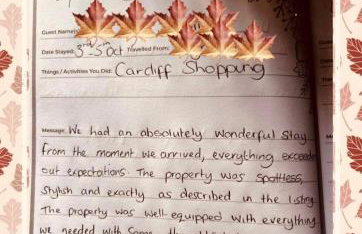 Guest Name(s)
Date Stayed: 3rd - 5th Oct Travelled From:
Things / Activities You Did: Cardiff Shopping
Message: We had an absolutely wonderful stay
from the moment we arrived, everything exceede
out expectations. The property was spotless,
Stylish and exactly as described in the listing
The property was well equipped with everything
we needed with some